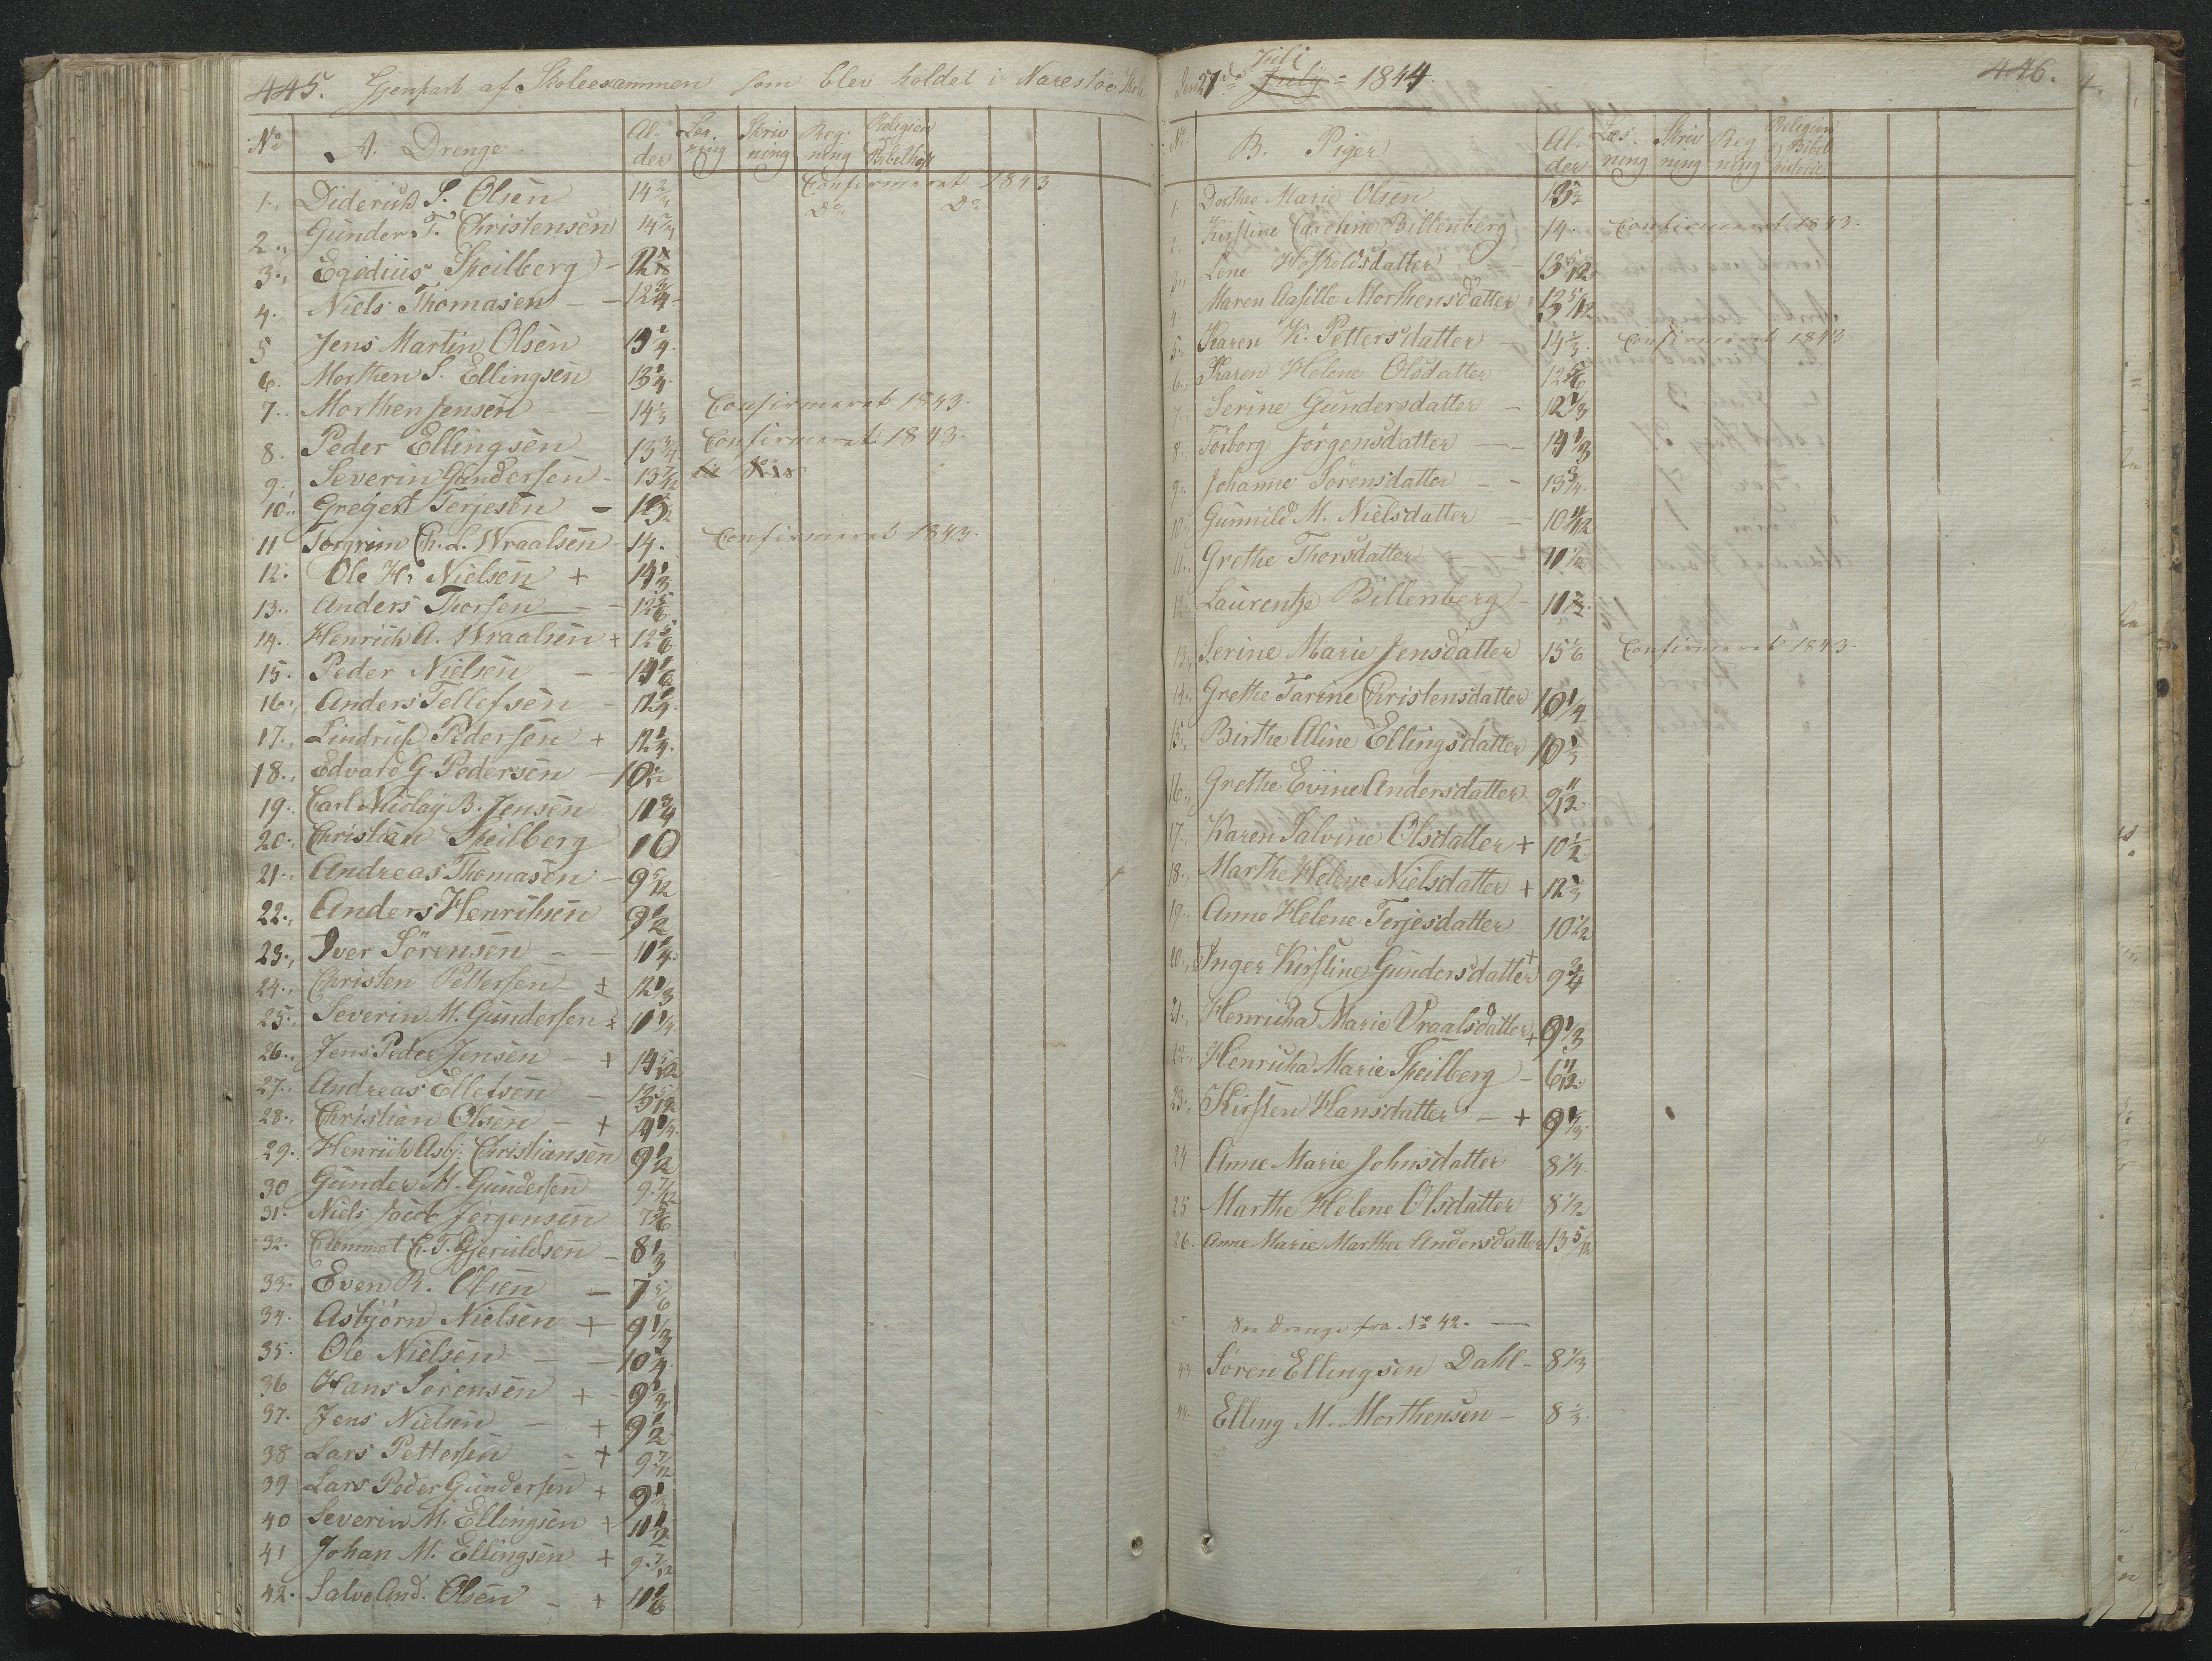 445. Gjenpart af Skoleexammen som blev holdet i Narestöe Skole
No A. Drenge Al-der Læs-ning Skriv ning Reg-ning Religion Bibelhist
1., Diderich S. Olsen 14 Confirmeret 1843
2., Gunder T. Christensen 14 Do Do
3., Egidius Speilberg - 12
4., Niels Thomasen - - 12 3/4
5 Jens Martin Olsen 13 1/4
6. Morthen S. Ellingsen 13 1/4
7. Morthen Jensen - - 14 1/3 Confirmeret 1843.
8. Peder Ellingsen 13 3/4 Confirmeret 1843.
9. Severin Gundersen - 13 7/12
10., Gregert Terjesen -
11 Torgrim Ch. L. Wraalsen - 14. Confirmeret 1843.
12. Ole H. Nielsen + 14 1/3
13., Anders Thorsen - 12 5/6
14. Henrich A. Wraalsen + 12 5/6
15. Peder Nielsen - - 14 1/6
16., Anders Tellefsen - 12 1/4
17., Lindrup Pedersen + 12 1/4
18., Edvard G. Pedersen - 10 1/12
19., Carl Nicolay B. Jensen 11 3/4
20., Christian Speilberg 10
21., Andreas Thomasen - 9 5/12
22., Anders Henrihsen 9 1/2
23., Iver Sörensen - - 11 1/4
24., Christen Pettersen + 12 1/3
25., Severin M. Gundersen + 11 1/4
26., Jens Peder Jensen - + 14 5/12
27., Andreas Ellefsen - 13 5/12
28., Christian Olsen - + 14 1/4
29. Henrich Asbj: Christiansen 9 1/2
30 Gunder M. Gundersen 9. 7/12
31. Niels Jacob Jörgensen 7 5/6
32. Clemmet C. T. Gjeruldsen - 8 1/3
33. Even R. Olsen - 7 5/6
34. Asbjörn Nielsen + 9 1/3
35. Ole Nielsen - - 10 1/4
36 Hans Sörensen + - 9 1/3
37. Jens Nielsen - + 9 1/2
38 Lars Pettersen - + 9 7/12
39 Lars Peder Gundersen + 9 1/3
40 Severin M. Ellingsen + 11 1/2
41 Johan M. Ellingsen + 9. 7/12
42. Salve And. Olsen - + 11 1/6
Juli
Den 27de July = 1844. 446.
No B. Piger Al-der Læs-ning Skriv ning Reg ning Religion & Bibel historie
1. Dorthee Marie Olsen
2. Kirstine Caroline Billenberg 14. Confirmeret 1843.
3., Lene Hoskoldsdatter - 13 5/12
4. Maren Aasille Morthensdatter 13 5/12
5. Karen K. Pettersdatter - 14 1/3. Confirmeret 1843
6., Karen Helene Olsdatter 12 5/6
7. Serine Gundersdatter - 12 1/3
8. Torborg Jörgensdatter - - 14 1/3
9. Johanne Sörensdatter - - 13 3/4.
10. Gunnild M. Nielsdatter - 10 11/12
11. Grethe Thorsdatter - - 11 1/2
12. Laurentze Billenberg - 11 1/2.
13., Serine Marie Jensdatter 15 1/6 Confirmeret 1843.
14., Grethe Tarine Christensdatter 10 1/4
15., Birthe Aline Ellingsdatter 10 1/3
16., Grethe Evine Andersdatter 9 11/12.
17. Karen Salvine Olsdatter + 10 1/2
18., Marthe Helene Nielsdatter + 12 1/4
19. Anne Helene Terjesdatter 10 1/2
20., Inger Kirstine Gundersdatter + 9 3/4
21., Henricha Marie Vraalsdatter + 9 1/3
22., Henricha Marie Speilberg - 6 11/12.
23., Kirsten Hansdatter - + 9 1/3.
24 Anne Marie Johnsdatter 8 1/4.
25 Marthe Helene Olsdatter 8 1/2
26. Anne Marie Marthee Andersdatter 13 5/12
Drenge fra No 42. -
43 Sören Ellingsen Dahl - 8 1/3
44. Elling M. Morthensen - 8 1/3.